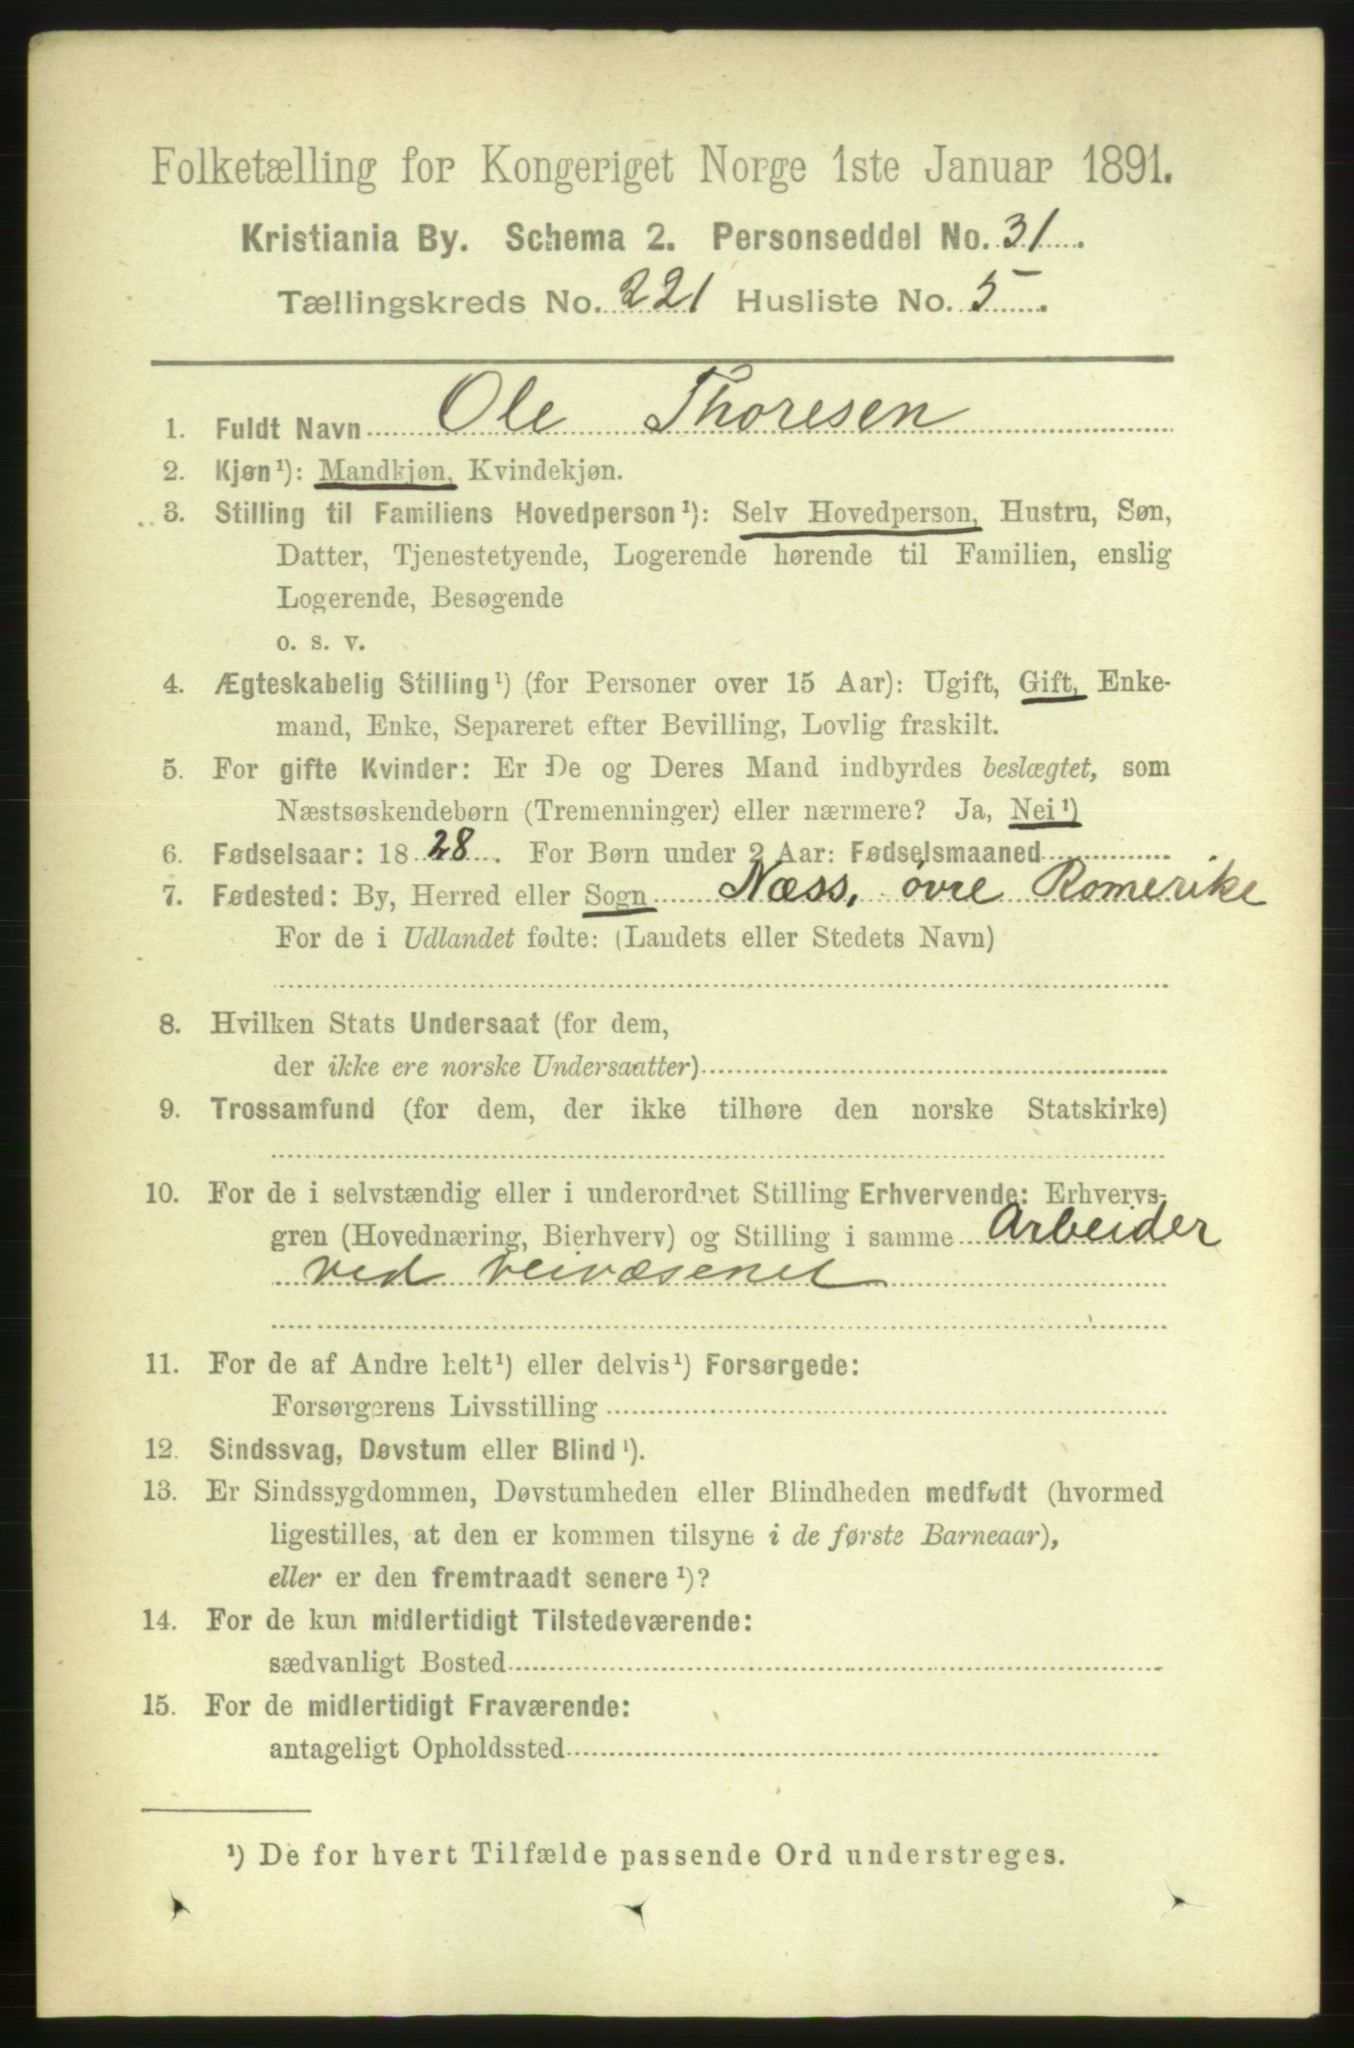 Folketælling for Kongeriget Norge 1ste Januar 1891.
Kristiania By. Schema 2. Personseddel No. 31.
Tællingskreds No. 221 Husliste No. 5.
1. Fuldt Navn Ole Thoresen
2. Kjøn¹): Mandkjøn, Kvindekjøn.
3. Stilling til Familiens Hovedperson¹): Selv Hovedperson, Hustru, Søn,
Datter, Tjenestetyende, Logerende hørende til Familien, enslig
Logerende, Besøgende
o. s. v.
4. Ægteskabelig Stilling¹) (for Personer over 15 Aar): Ugift, Gift, Enke-
mand, Enke, Separeret efter Bevilling, Lovlig fraskilt.
5. For gifte Kvinder: Er De og Deres Mand indbyrdes beslægtet, som
Næstsøskendebørn (Tremenninger) eller nærmere? Ja, Nei¹)
6. Fødselsaar: 1828. For Børn under 2 Aar: Fødselsmaaned
7. Fødested: By, Herred eller Sogn Næss, øvre Romerike
For de i Udlandet fødte: (Landets eller Stedets Navn)
8. Hvilken Stats Undersaat (for dem,
der ikke ere norske Undersaatter)
9. Trossamfund (for dem, der ikke tilhøre den norske Statskirke)
10. For de i selvstændig eller i underordnet Stilling Erhvervende: Erhvervs-
gren (Hovednæring, Bierhverv) og Stilling i samme Arbeider
ved veivæsenet
11. For de af Andre helt¹) eller delvis¹) Forsørgede:
Forsørgerens Livsstilling
12. Sindssvag, Døvstum eller Blind¹).
13. Er Sindssygdommen, Døvstumheden eller Blindheden medfødt (hvormed
ligestilles, at den er kommen tilsyne i de første Barneaar),
eller er den fremtraadt senere¹)?
14. For de kun midlertidigt Tilstedeværende:
sædvanligt Bosted
15. For de midlertidigt Fraværende:
antageligt Opholdssted
¹) De for hvert Tilfælde passende Ord understreges.